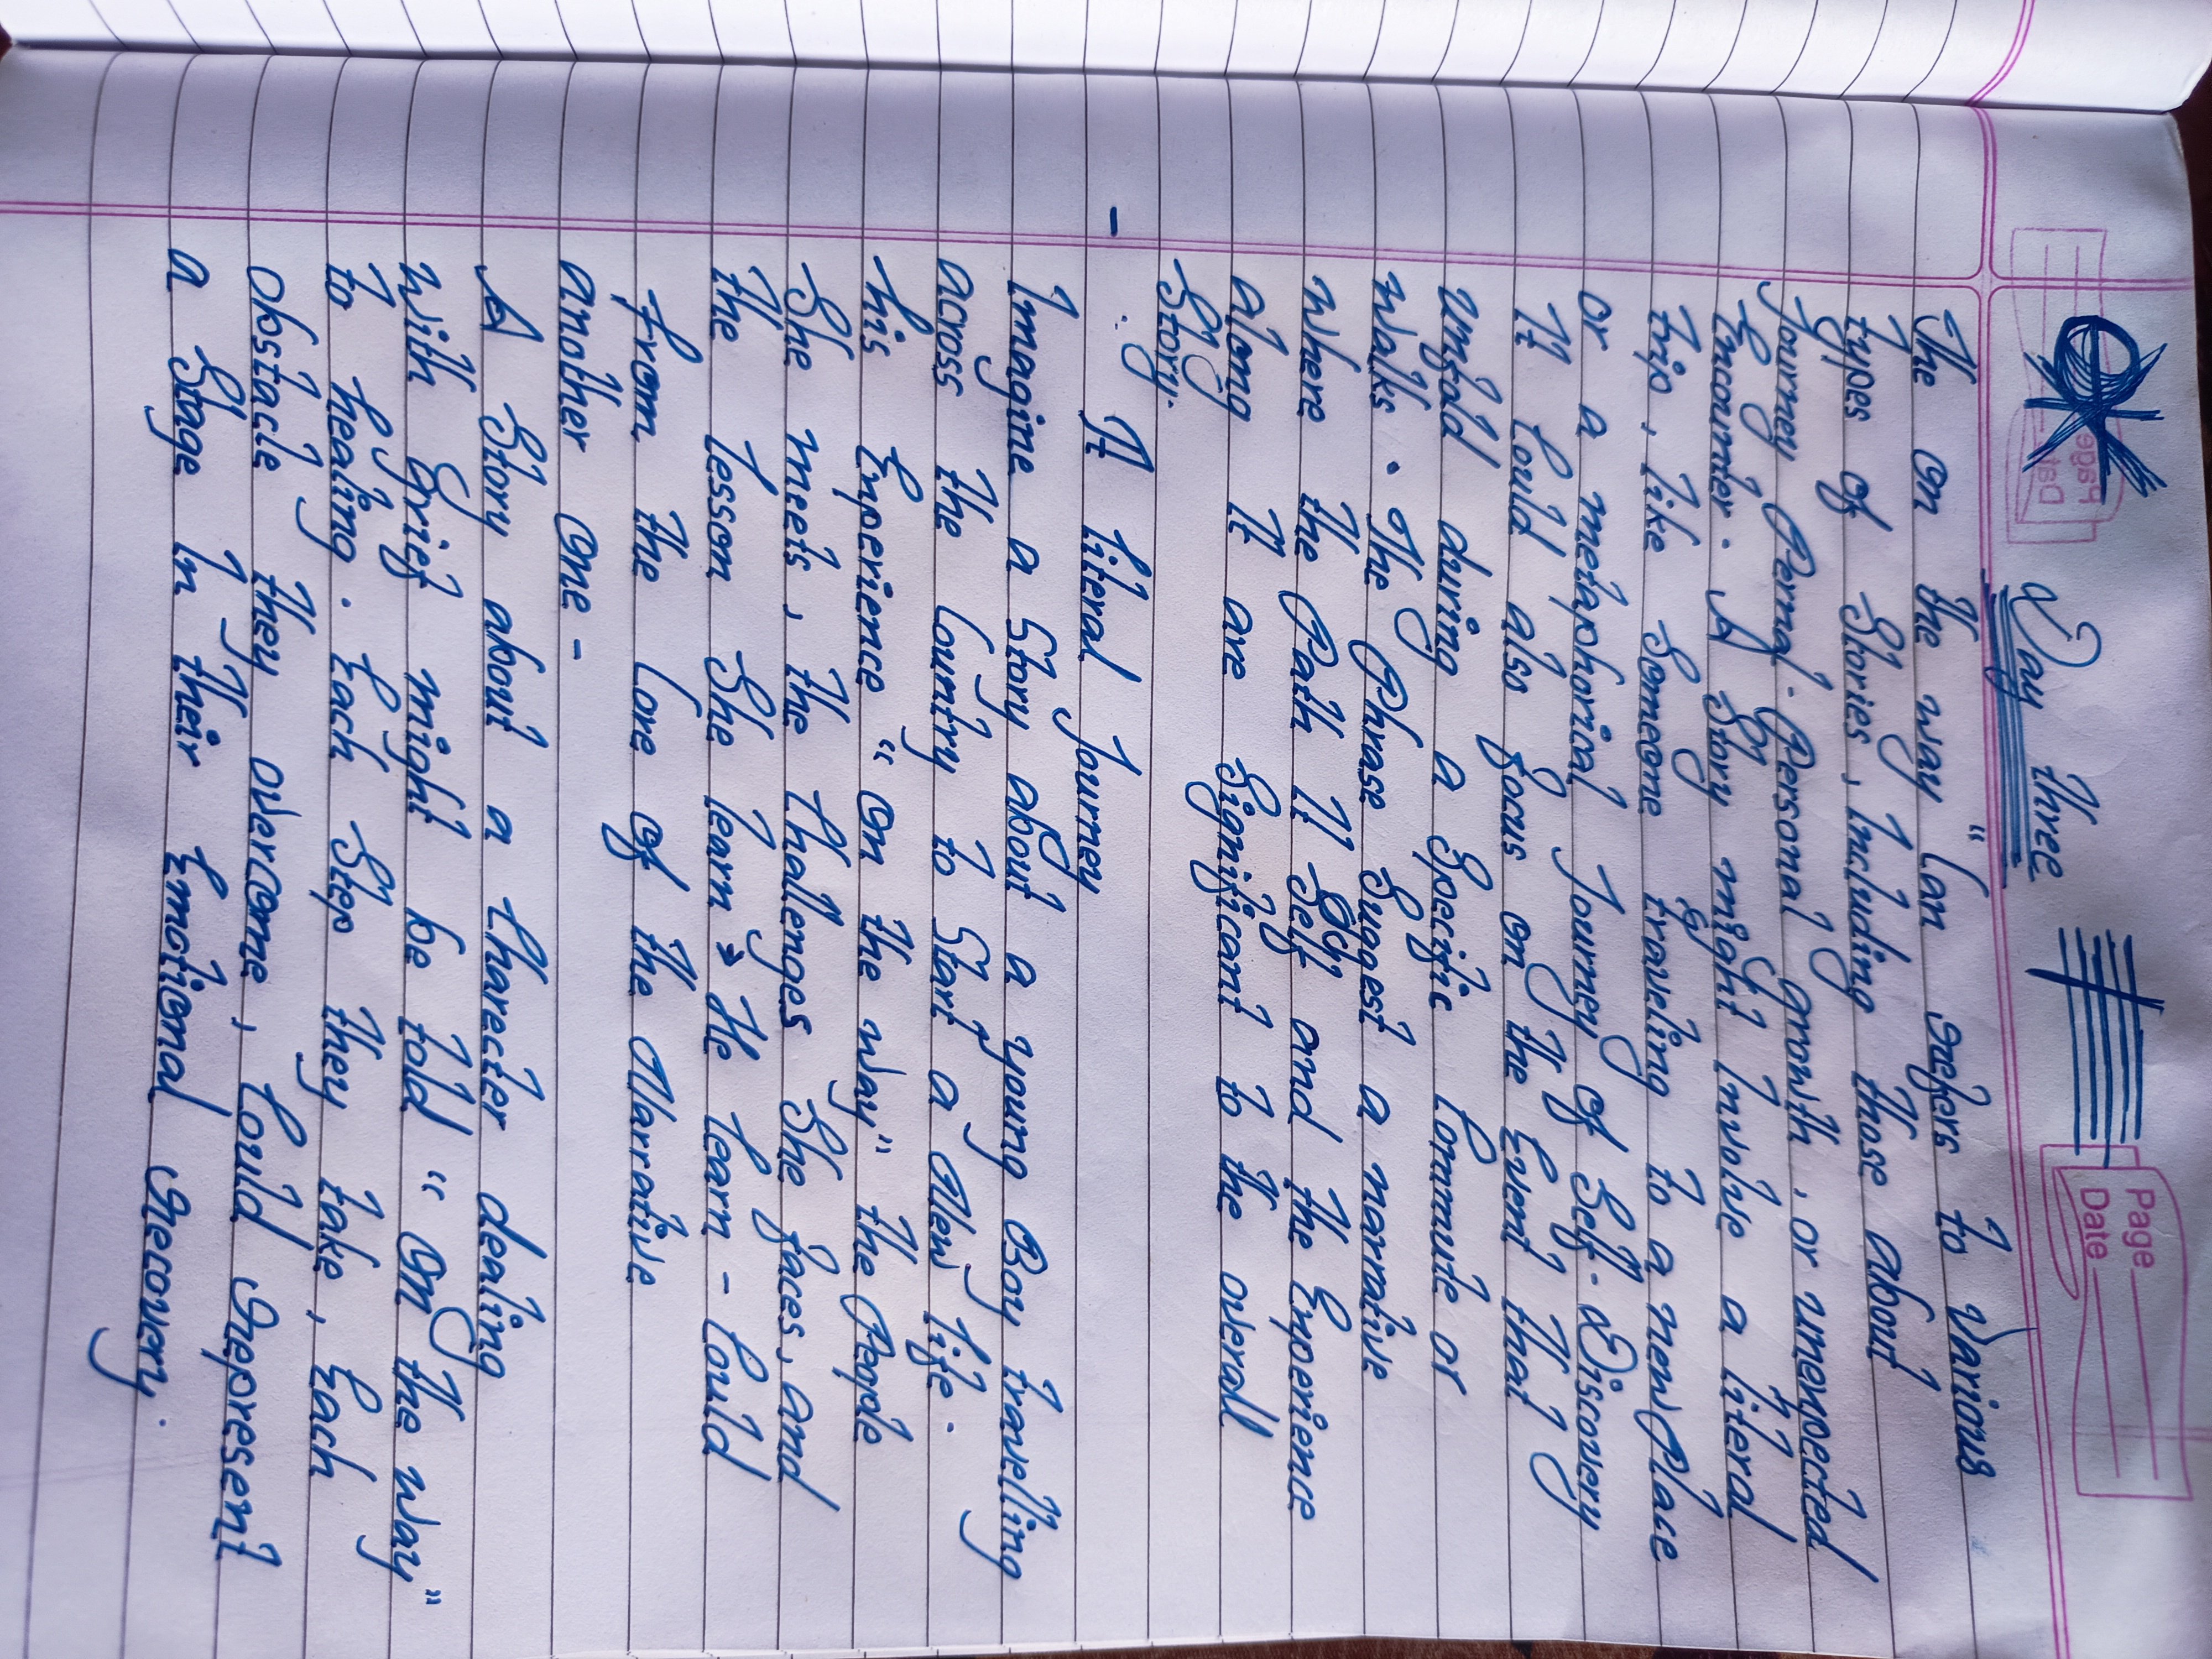 Day three
Page
Date
The on the way" Can refers to Various
types of Stories, Including those about
Journey Pernal. Personal growth, or unexpected
Encounter. A Story might Involve a literal
trip, like Someone traveling to a new Place
or a metaphorial Journey of Self-Discovery
It Could also focus on the Event that
unfold during a Specific Commute or
walks. The Phrase Suggest a narrative
where the Path It Self and the Experience
along It are Significant to the overall
Story.
- A literal Journey
Imagine a Story about a young Boy travelling
across the Country to Start a New life.
his Experience "on the way" the People
She meets, the Challenges She faces, and
the lesson She learn He learn - Could
from the Core of the Narrative
another one -
A Story about a Charecter dealing
with Grief might be told "on the way"
to healing. Each Step they take, Each
obstacle they overcome, Could Represent
a Stage In their Emotional Recovery.